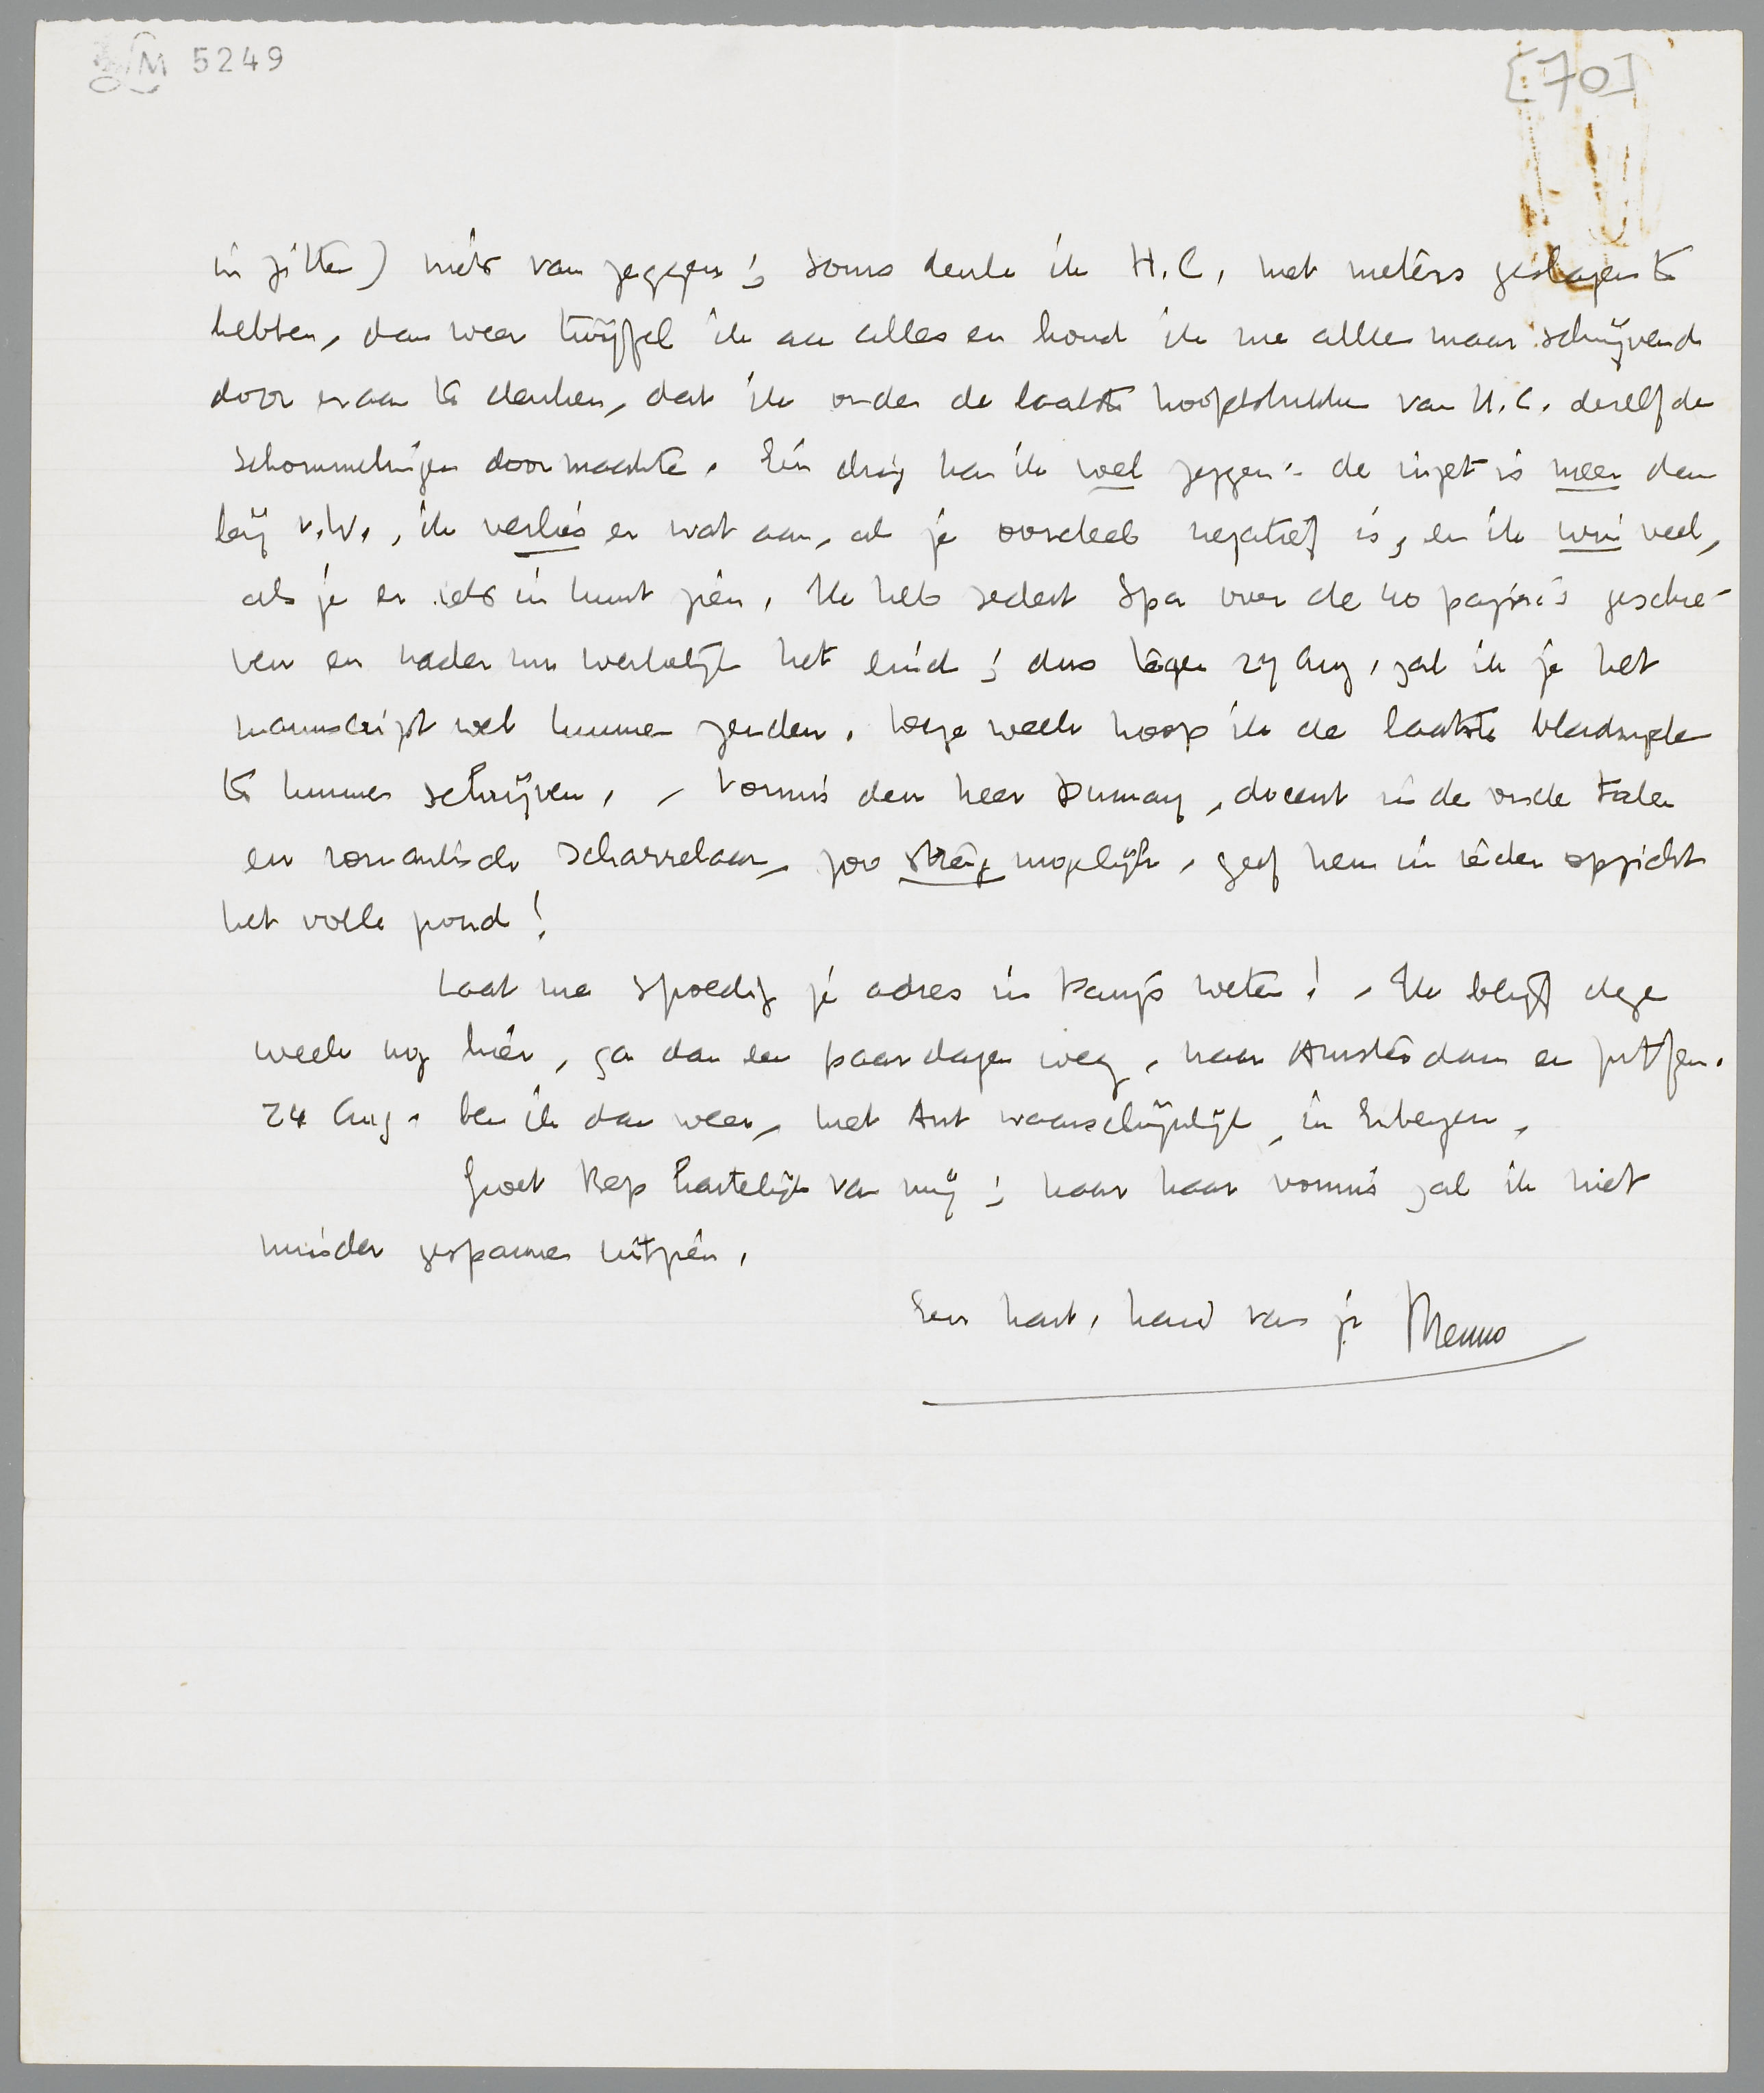 M 5249
[70]
in zitten) niets van zeggen; soms denk ik H.C. met meters geslagen te
hebben, dan weer twijfel ik aan alles en houd ik me alleen maar schrijvend
door eraan te denken, dat ik onder de laatste hoofdstukken van H.C. dezelfde
schommelingen doormaakte. Eén ding kan ik wel zeggen: de inzet is meer dan
bij v.W., ik verlies er wat aan, als je oordeel negatief is, en ik win veel,
als je er iets in kunt zien. Ik heb sedert Spa over de 40 pagina's geschre-
ven en nader nu werkelijk het eind; dus tegen 27 Aug. zal ik je het
manuscript wel kunnen zenden. Deze week hoop ik de laatste bladzijde
te kunnen schrijven. - Vonnis den heer Dumay, docent in de oude talen
en romantische scharrelaar, zoo streng mogelijk, geef hem in ieder opzicht
het volle pond!
Laat me spoedig je adres in Parijs weten! - Ik blijf deze
week nog hier, ga dan een paar dagen weg, naar Amsterdam en Zutfen.
24 Aug. ben ik dan weer, met Ant waarschijnlijk, in Eibergen.
Groet Bep hartelijk van mij; naar haar vonnis zal ik niet
minder gespannen uitzien.
Een hart. hand van je Menno